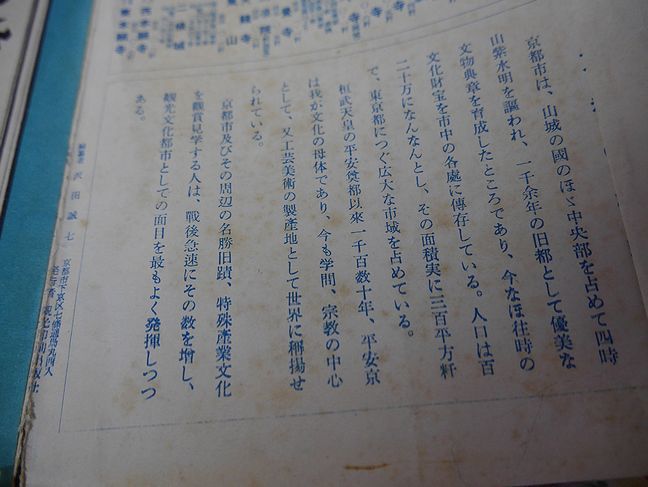 京都市は、山城の國のほゞ中央部を占めて四時
山紫水明を謳われ、一千余年の旧都として優美な
文物典章を育成したところであり、今なほ往時の
文化財宝を市中の各處に傳存している。人口は百
二十万になんなんとし、その面積実に三百平方粁
で、東京都につぐ広大な市域を占めている。
桓武天皇の平安奠都以來一千百数十年、平安京
は我が文化の母体であり、今も学問、宗教の中心
として、又工芸美術の製産地として世界に稱揚せ
られている。
京都市及びその周辺の名勝旧蹟、特殊産業文化
を観賞見学する人は、戦後急速にその数を増し、
観光文化都市としての面目を最もよく発揮しつつ
ある。
編集者 沢田誠七